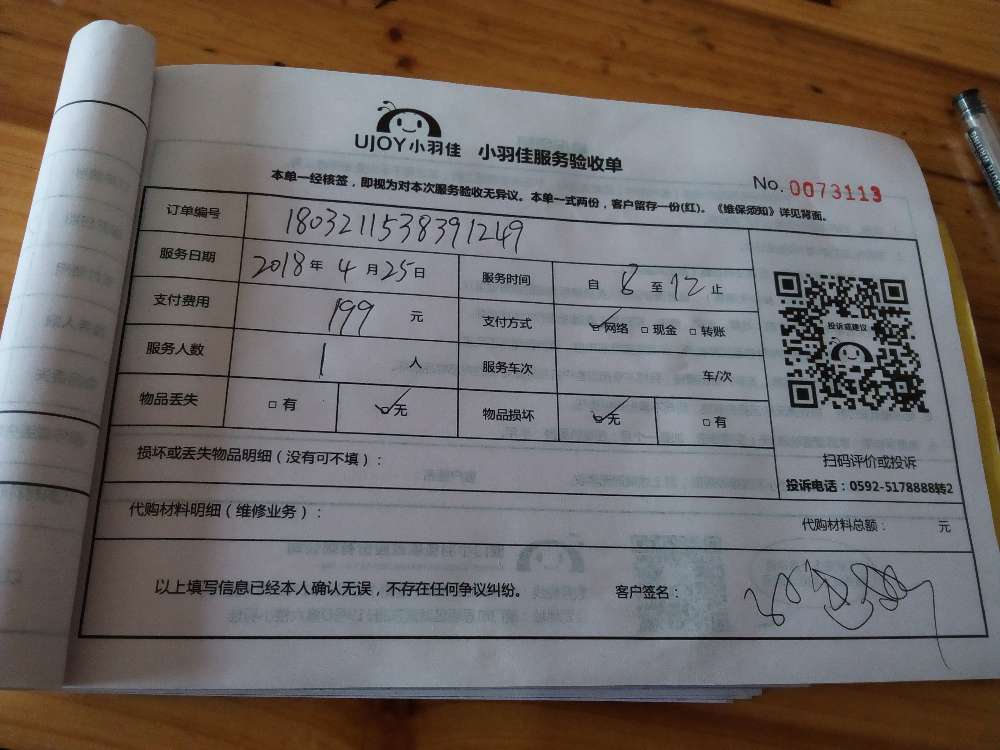 UJOY小羽佳 小羽佳服务验收单
No. 0073113
本单一经核签，即视为对本次服务验收无异议。本单一式两份，客户留存一份(红)。《维保须知》详见背面。
订单编号 1803211538391249
服务日期 2018年4月25日 服务时间 自8至12止
支付费用 199元 支付方式 ☑网络 □现金 □转账
服务人数 1人 服务车次 车/次
物品丢失 □有 ☑无 物品损坏 ☑无 □有
投诉或建议
扫码评价或投诉
投诉电话：0592-5178888转2
损坏或丢失物品明细（没有可不填）：
代购材料明细（维修业务）： 代购材料总额： 元
以上填写信息已经本人确认无误，不存在任何争议纠纷。 客户签名：